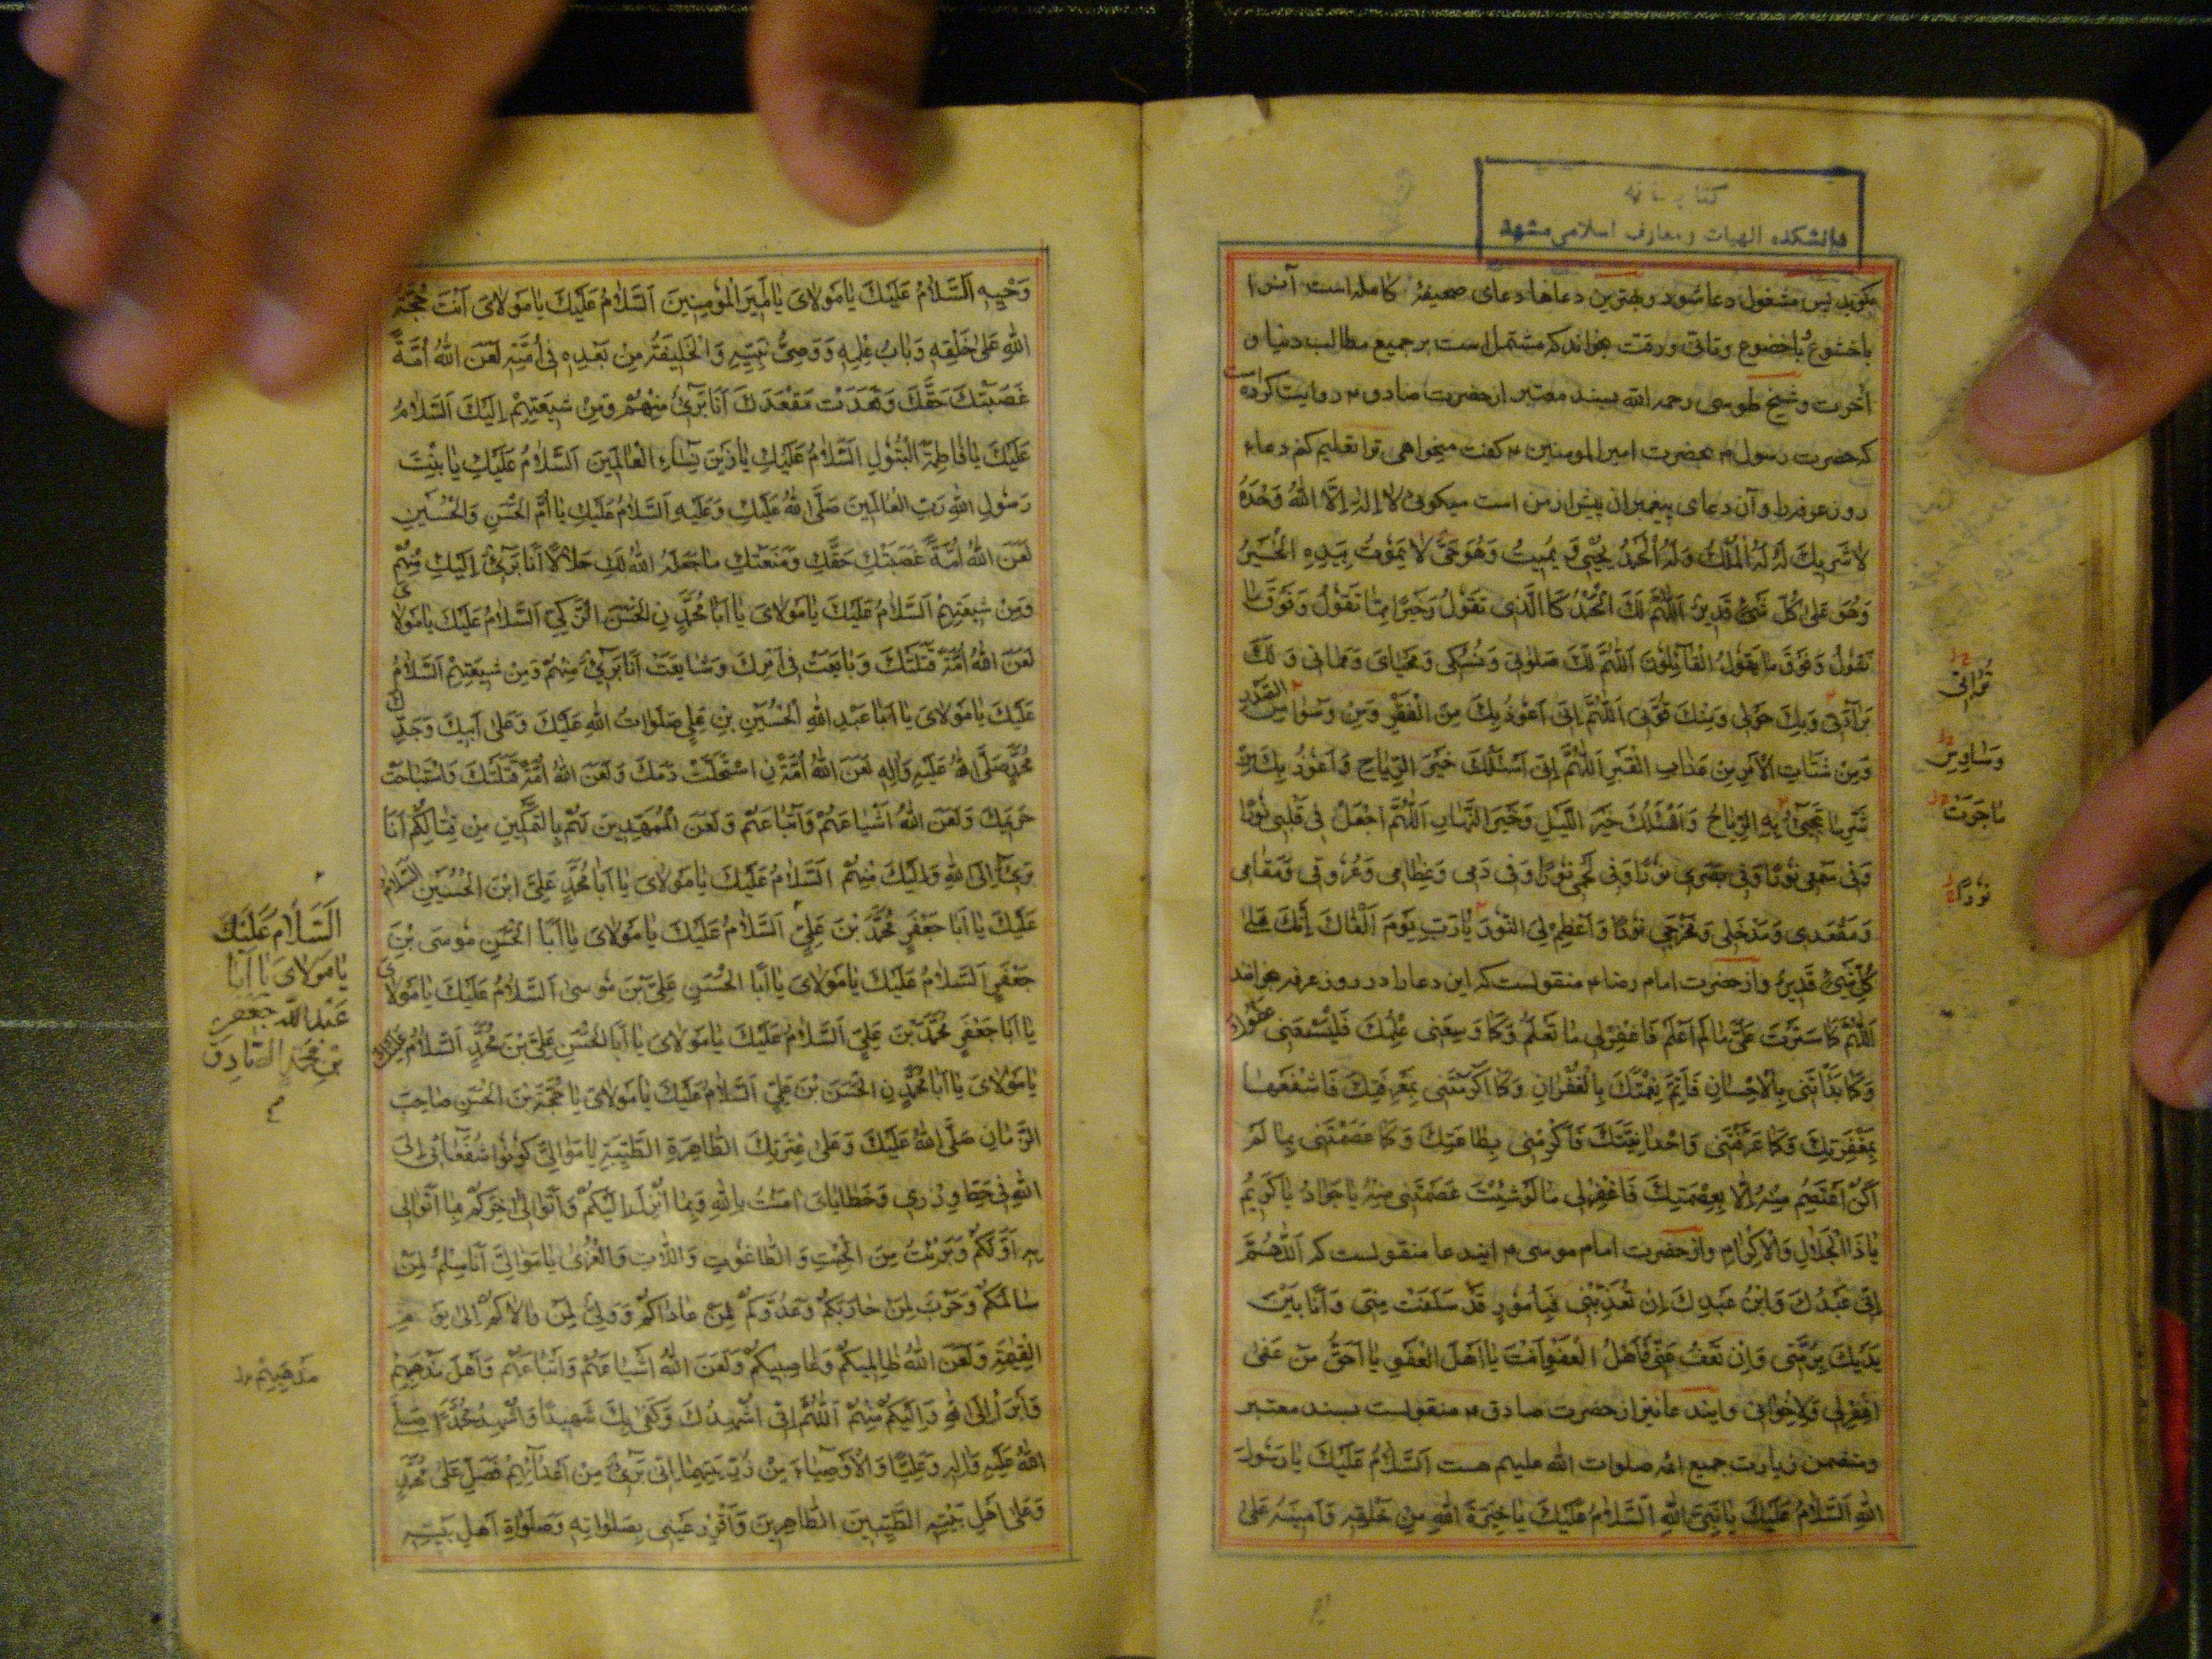 كتابخانه
دانشکده الهیات و معارف اسلامی مشهد
میکوید پس مشغول دعا شود و بهترین دعاها دعای صحیفهٔ کامله است آنرا
با خشوع با خضوع و تانی و رقت بخواند که مشتمل است بر جمیع مطالب دنیا و
آخرت و شیخ طوسی رحمه الله بسند معتبر از حضرت صادق ۴ روایت کرده است
که حضرت رسول ۴ بحضرت امیر المومنین ۴ کفت میخواهی ترا تعلیم کنم دعاء
روز عرفه را و آن دعای پیغمبران پیش از من است میکوئی لا اِلهَ اِلَّا اللهُ وَحْدَهُ
لا شَریكَ لَهُ لَهُ الْمُلْكُ وَلَهُ الْحَمْدُ یُحْیِی وَ یُمیتُ وَهُوَ حَیٌّ لا یَمُوتُ بِیَدِهِ الْخَیْرُ
وَهُوَ عَلی كُلِّ شَیْءٍ قَدیرٌ اَللّهُمَّ لَكَ الْحَمْدُ كَالَّذی تَقُولُ وَخَیْرًا مِمّا نَقُولُ وَفَوْقَ ما
نَقُولُ وَفَوْقَ ما یَقُولُ الْقآئِلُونَ اَللّهُمَّ لَكَ صَلوتی وَنُسُكی وَمَحْیایَ وَمَماتی وَ لَكَ
بَرآئَتی وَبِكَ حَوْلی وَمِنْكَ قُوَّتی اَللّهُمَّ اِنّی اَعُوذُ بِكَ مِنَ الْفَقْرِ وَمِنْ وَسْواسِ الصَّدْرِ
وَمِنْ شَتاتِ الْاَمْرِ مِنْ عَذابِ الْقَبْرِ اَللّهُمَّ اِنّی اَسْئَلُكَ خَیْرَ الرِّیاحِ وَ اَعُوذُ بِكَ مِنْ
شَرِّ ما تَجِیءُ بِهِ الرِّیاحُ وَ اَسْئَلُكَ خَیْرَ اللَّیْلِ وَخَیْرَ النَّهارِ اَللّهُمَّ اجْعَلْ فی قَلْبی نُورًا
وَفی سَمْعی نُورًا وَفی بَصَری نُورًا وَفی لَحْمی نُورًا وَفی دَمی وَعِظامی وَعُرُوقی وَمَقامی
وَمَقْعَدی وَمَدْخَلی وَمَخْرَجی نُورًا وَاَعْظِمْ لِیَ النُّورَ یا رَبِّ یَوْمَ اَلْقاكَ اِنَّكَ عَلی
كُلِّ شَیْءٍ قَدیرٌ و از حضرت امام رضا ۴ منقولست که این دعا را در روز عرفه بخوانند
اَللّهُمَّ كَما سَتَرْتَ عَلَیَّ ما لَمْ اَعْلَمْ فَاغْفِرْ لی ما تَعْلَمُ وَكَما وَسِعَنی عِلْمُكَ فَلْیَسَعْنی عَفْوُكَ
وَكَما بَدَاْتَنی بِالْاِحْسانِ فَاَتِمَّ نِعْمَتَكَ بِالْغُفْرانِ وَكَما اَكْرَمْتَنی بِمَعْرِفَتِكَ فَاشْفَعْها
بِمَغْفِرَتِكَ وَكَما عَرَّفْتَنی وَحْدانِیَّتَكَ فَاَكْرِمْنی بِطاعَتِكَ وَكَما عَصَمْتَنی مِمّا لَمْ
اَكُنْ اَعْتَصِمُ مِنْهُ اِلّا بِعِصْمَتِكَ فَاغْفِرْ لی ما لَوْ شِئْتَ عَصَمْتَنی مِنْهُ یا جَوادُ یا كَریمُ
یا ذَا الْجَلالِ وَالْاِكْرامِ و از حضرت امام موسی ۴ ایندعا منقولست که اَللّهُمَّ
اِنّی عَبْدُكَ وَابْنُ عَبْدِكَ اِنْ تُعَذِّبْنی فَبِاُمُورٍ قَدْ سَلَفَتْ مِنّی وَاَنَا بَیْنَ
یَدَیْكَ بِرُمَّتی وَاِنْ تَعْفُ عَنّی فَاَهْلُ الْعَفْوِ اَنْتَ یا اَهْلَ الْعَفْوِ یا اَحَقَّ مَنْ عَفی
اِغْفِرْ لی وَلِاِخْوانی و ایندعا نیز از حضرت صادق ۴ منقولست بسند معتبر
و متضمن زیارت جمیع ائمه صلوات الله علیهم هست اَلسَّلامُ عَلَیْكَ یا رَسُولَ
اللهِ اَلسَّلامُ عَلَیْكَ یا نَبِیَّ اللهِ اَلسَّلامُ عَلَیْكَ یا خِیَرَةَ اللهِ مِنْ خَلْقِهِ وَاَمینَهُ عَلی
نورًا
وَحْیِهِ اَلسَّلامُ عَلَیْكَ یا مَوْلایَ یا اَمیرَ الْمُؤْمِنینَ اَلسَّلامُ عَلَیْكَ یا مَوْلایَ اَنْتَ حُجَّةُ
اللهِ عَلی خَلْقِهِ وَبابُ عِلْمِهِ وَوَصِیُّ نَبِیِّهِ وَالْخَلیفَةُ مِنْ بَعْدِهِ فی اُمَّتِهِ لَعَنَ اللهُ اُمَّةً
غَصَبَتْكَ حَقَّكَ وَقَعَدَتْ مَقْعَدَكَ اَنَا بَرِیءٌ مِنْهُمْ وَمِنْ شیعَتِهِمْ اِلَیْكَ اَلسَّلامُ
عَلَیْكِ یا فاطِمَةُ الْبَتُولِ اَلسَّلامُ عَلَیْكِ یا زَیْنَ نِسآءِ الْعالَمینَ اَلسَّلامُ عَلَیْكِ یا بِنْتَ
رَسُولِ اللهِ رَبِّ الْعالَمینَ صَلَّی اللهُ عَلَیْكِ وَعَلَیْهِ اَلسَّلامُ عَلَیْكِ یا اُمَّ الْحَسَنِ وَالْحُسَیْنِ
لَعَنَ اللهُ اُمَّةً غَصَبَتْكِ حَقَّكِ وَمَنَعَتْكِ ما جَعَلَهُ اللهُ لَكِ حَلالًا اَنَا بَرِیءٌ اِلَیْكِ مِنْهُمْ
وَمِنْ شیعَتِهِمْ اَلسَّلامُ عَلَیْكَ یا مَوْلایَ یا اَبا مُحَمَّدٍ نِ الْحَسَنَ الزَّكِیَّ اَلسَّلامُ عَلَیْكَ یا مَوْلایَ
لَعَنَ اللهُ اُمَّةً قَتَلَتْكَ وَبایَعَتْ فی اَمْرِكَ وَشایَعَتْ اَنَا بَرِیءٌ مِنْهُمْ وَمِنْ شیعَتِهِمْ اَلسَّلامُ
عَلَیْكَ یا مَوْلایَ یا اَبا عَبْدِ اللهِ الْحُسَیْنِ بْنِ عَلِیٍّ صَلَواتُ اللهِ عَلَیْكَ وَعَلی اَبیكَ وَجَدِّكَ
مُحَمَّدٍ صَلَّی اللهُ عَلَیْهِ وَالِهِ لَعَنَ اللهُ اُمَّةً نِ اسْتَحَلَّتْ دَمَكَ وَلَعَنَ اللهُ اُمَّةً قَتَلَتْكَ وَاسْتَباحَتْ
حَریمَكَ وَلَعَنَ اللهُ اَشْیاعَهُمْ وَاَتْباعَهُمْ وَلَعَنَ الْمُمَهِّدینَ لَهُمْ بِالتَّمْكینِ مِنْ قِتالِكُمْ اَنَا
بَرِیءٌ اِلَی اللهِ وَاِلَیْكَ مِنْهُمْ اَلسَّلامُ عَلَیْكَ یا مَوْلایَ یا اَبا مُحَمَّدٍ عَلِیَّ ابْنَ الْحُسَیْنِ اَلسَّلامُ
عَلَیْكَ یا اَبا جَعْفَرٍ مُحَمَّدَ بْنَ عَلِیٍّ اَلسَّلامُ عَلَیْكَ یا مَوْلایَ یا اَبَا الْحَسَنِ مُوسَی بْنَ
جَعْفَرٍ اَلسَّلامُ عَلَیْكَ یا مَوْلایَ یا اَبَا الْحَسَنِ عَلِیَّ بْنَ مُوسی اَلسَّلامُ عَلَیْكَ یا مَوْلایَ
یا اَبا جَعْفَرٍ مُحَمَّدَ بْنَ عَلِیٍّ اَلسَّلامُ عَلَیْكَ یا مَوْلایَ یا اَبَا الْحَسَنِ عَلِیَّ بْنَ مُحَمَّدٍ اَلسَّلامُ عَلَیْكَ
یا مَوْلایَ یا اَبا مُحَمَّدٍ نِ الْحَسَنَ بْنَ عَلِیٍّ اَلسَّلامُ عَلَیْكَ یا مَوْلایَ یا حُجَّةَ بْنَ الْحَسَنِ صاحِبَ
الزَّمانِ صَلَّی اللهُ عَلَیْكَ وَعَلی عِتْرَتِكَ الطّاهِرَةِ الطَّیِّبَةِ یا مَوالِیَّ كُونُوا شُفَعآئی اِلَی
اللهِ فی حَطِّ وِزْری وَخَطایایَ امَنْتُ بِاللهِ وَبِما اُنْزِلَ اِلَیْكُمْ وَاَتَوالی اخِرَكُمْ بِما اَتَوالی
بِهِ اَوَّلَكُمْ وَبَرِئْتُ مِنَ الْجِبْتِ وَالطّاغُوتِ وَاللّاتِ وَالْعُزّی یا مَوالِیَّ اَنَا سِلْمٌ لِمَنْ
سالَمَكُمْ وَحَرْبٌ لِمَنْ حارَبَكُمْ وَعَدُوٌّ لِمَنْ عاداكُمْ وَوَلِیٌّ لِمَنْ والاكُمْ اِلی یَوْمِ
الْقِیمَةِ وَلَعَنَ اللهُ ظالِمیكُمْ وَغاصِبیكُمْ وَلَعَنَ اللهُ اَشْیاعَهُمْ وَاَتْباعَهُمْ وَاَهْلَ مَذْهَبِهِمْ
وَاَبْرَءُ اِلَی اللهِ وَاِلَیْكُمْ مِنْهُمْ اَللّهُمَّ اِنّی اُشْهِدُكَ وَكَفی بِكَ شَهیدًا وَاُشْهِدُ مُحَمَّدًا صَلَّی
اللهُ عَلَیْهِ وَالِهِ وَعَلِیًّا وَالْاَوْصِیآءَ مِنْ ذُرِّیَّتِهِما اِنّی بَرِیءٌ مِنْ اَعْدآئِهِمْ فَصَلِّ عَلی مُحَمَّدٍ
وَعَلی اَهْلِ بَیْتِهِ الطَّیِّبینَ الطّاهِرینَ وَاَقْرِرْ عَیْنی بِصَلَواتِهِ وَصَلَواةِ اَهْلِ بَیْتِهِ
اَلسَّلامُ عَلَیْكَ
یا مَوْلایَ یا اَبا
عَبْدِ اللهِ جَعْفَرِ
بْنِ مُحَمَّدٍ الصّادِقَ
مَذْهَبِهِمْ